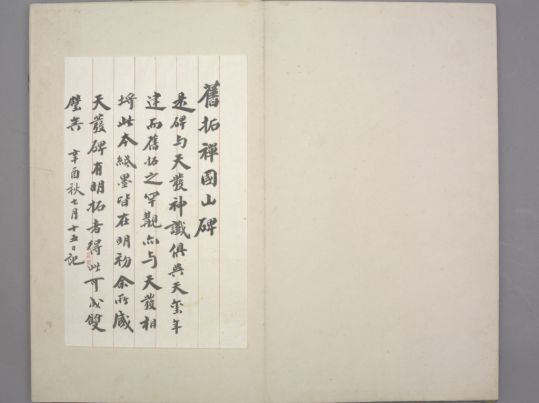 舊拓禪國山碑
是碑与天發神讖俱與天玺年
建而舊拓之罕觀亦与天發相
埒此本紙墨皆在明初余所藏
天發碑有明拓者得此可成雙
璧矣 辛酉秋七月十五日記